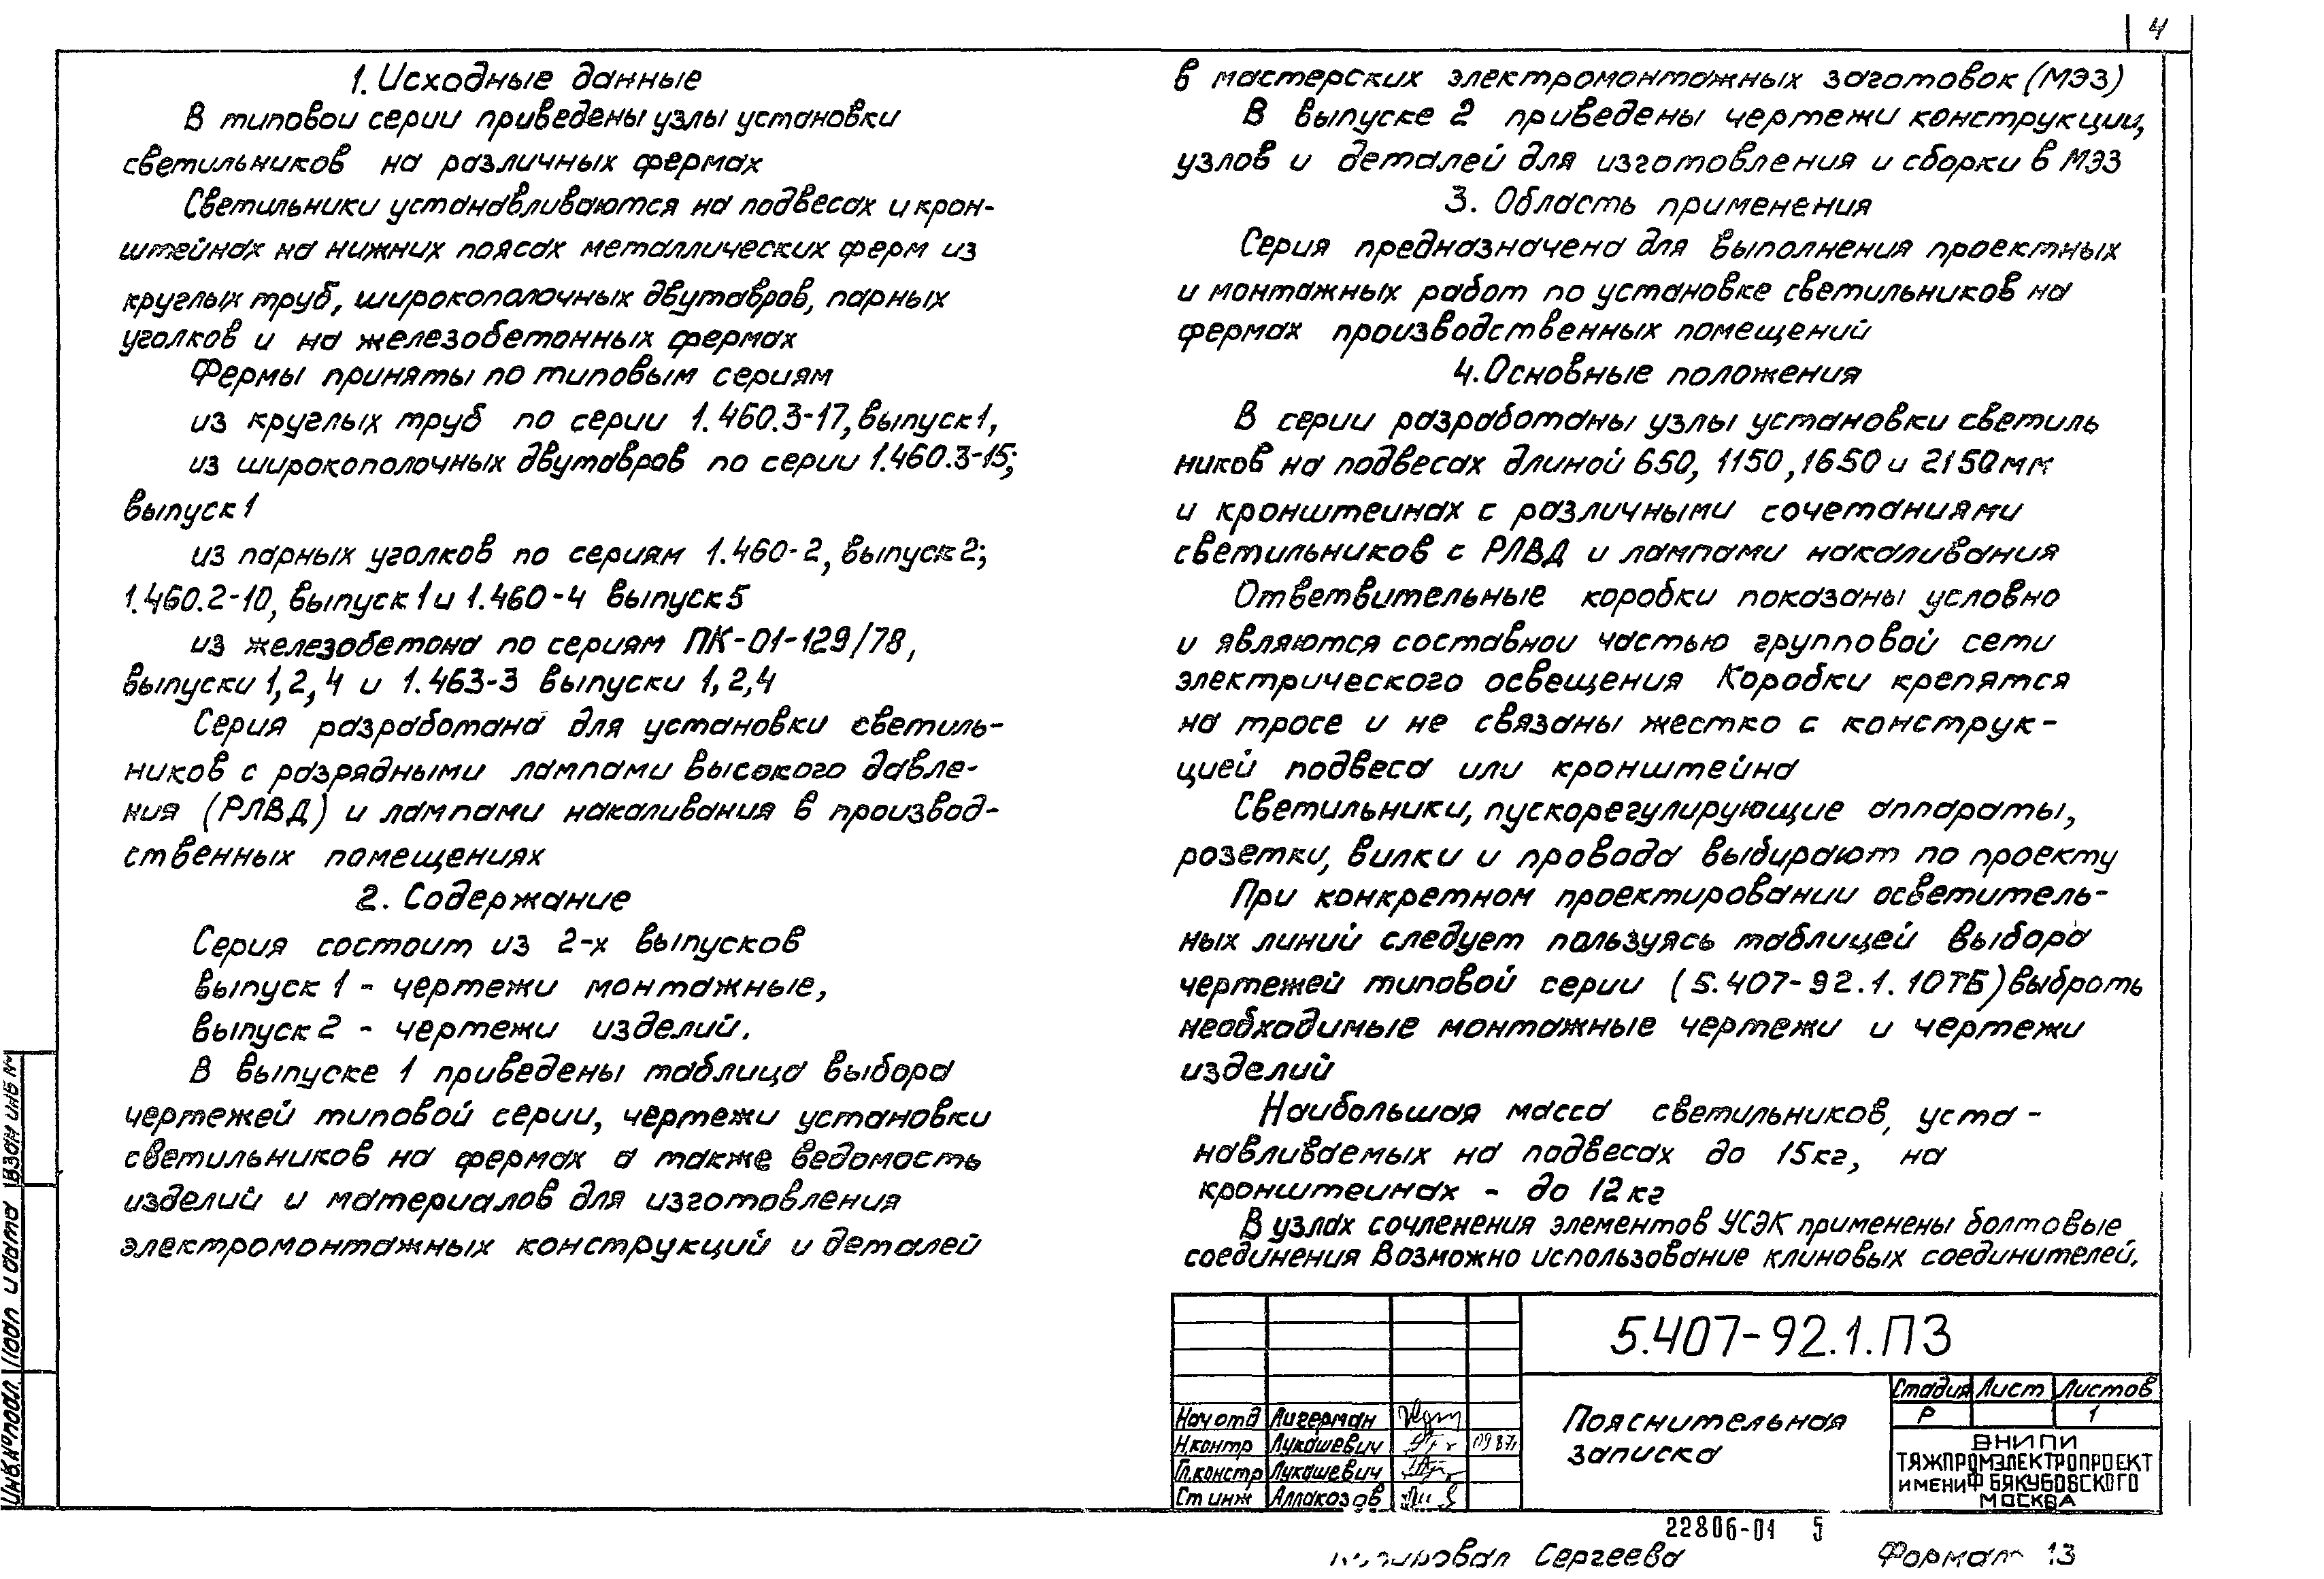 4
1. Исходные данные
В типовои серии приведены узлы установки
светильников на различных фермах
Светильники устанавливаются на подвесах и крон-
штейнах на нижних поясах металлических ферм из
круглых труб, широкополочных двутавров, парных
уголков и на железобетонных фермах
Фермы приняты по типовым сериям
из круглых труб по серии 1.460.3-17, выпуск 1,
из широкополочных двутавров по серии 1.460.3-15;
выпуск 1
из парных уголков по сериям 1.460-2, выпуск 2;
1.460.2-10, выпуск 1 и 1.460-4 выпуск 5
из железобетона по сериям ПК-01-129/78,
выпуски 1,2,4 и 1.463-3 выпуски 1,2,4
Серия разработана для установки светиль-
ников с разрядными лампами высокого давле-
ния (РЛВД) и лампами накаливания в производ-
ственных помещениях
2. Содержание
Серия состоит из 2-х выпусков
выпуск 1 - чертежи монтажные,
выпуск 2 - чертежи изделий.
В выпуске 1 приведены таблица выбора
чертежей типовой серии, чертежи установки
светильников на фермах а также ведомость
изделий и материалов для изготовления
электромонтажных конструкций и деталей
в мастерских электромонтажных заготовок (МЭЗ)
В выпуске 2 приведены чертежи конструкции,
узлов и деталей для изготовления и сборки в МЭЗ
3. Область применения
Серия предназначена для выполнения проектных
и монтажных работ по установке светильников на
фермах производственных помещений
4. Основные положения
В серии разработаны узлы установки светиль
ников на подвесах длиной 650, 1150, 1650 и 2150 мм
и кронштеинах с различными сочетаниями
светильников с РЛВД и лампами накаливания
Ответвительные коробки показаны условно
и являются составнои частью групповой сети
электрического освещения Коробки крепятся
на тросе и не связаны жестко с конструк-
цией подвеса или кронштейна
Светильники, пускорегулирующие аппараты,
розетки, вилки и провода выбирают по проекту
При конкретном проектировании осветитель-
ных линий следует пользуясь таблицей выбора
чертежей типовой серии (5.407-92.1.10ТБ) выбрать
необходимые монтажные чертежи и чертежи
изделий
Наибольшая масса светильников, уста-
навливаемых на подвесах до 15кг, на
кронштеинах - до 12кг
В узлах сочленения элементов УСЭК применены болтовые
соединения Возможно использование клиновых соединителей.
5.407-92.1.ПЗ
Пояснительная
записка
Стадия Лист Листов
Р 1
ВНИПИ
ТЯЖПРОМЭЛЕКТРОПРОЕКТ
ИМЕНИ Ф Б ЯКУБОВСКОГО
МОСКВА
Нач отд Лигерман
Н.контр Лукашевич 09 87г
Гл.констр Лукашевич
Ст инж Аллакозов
Инв.№ подл. Подп и дата Взам инв №
22806-01 5
Сергеева Формат